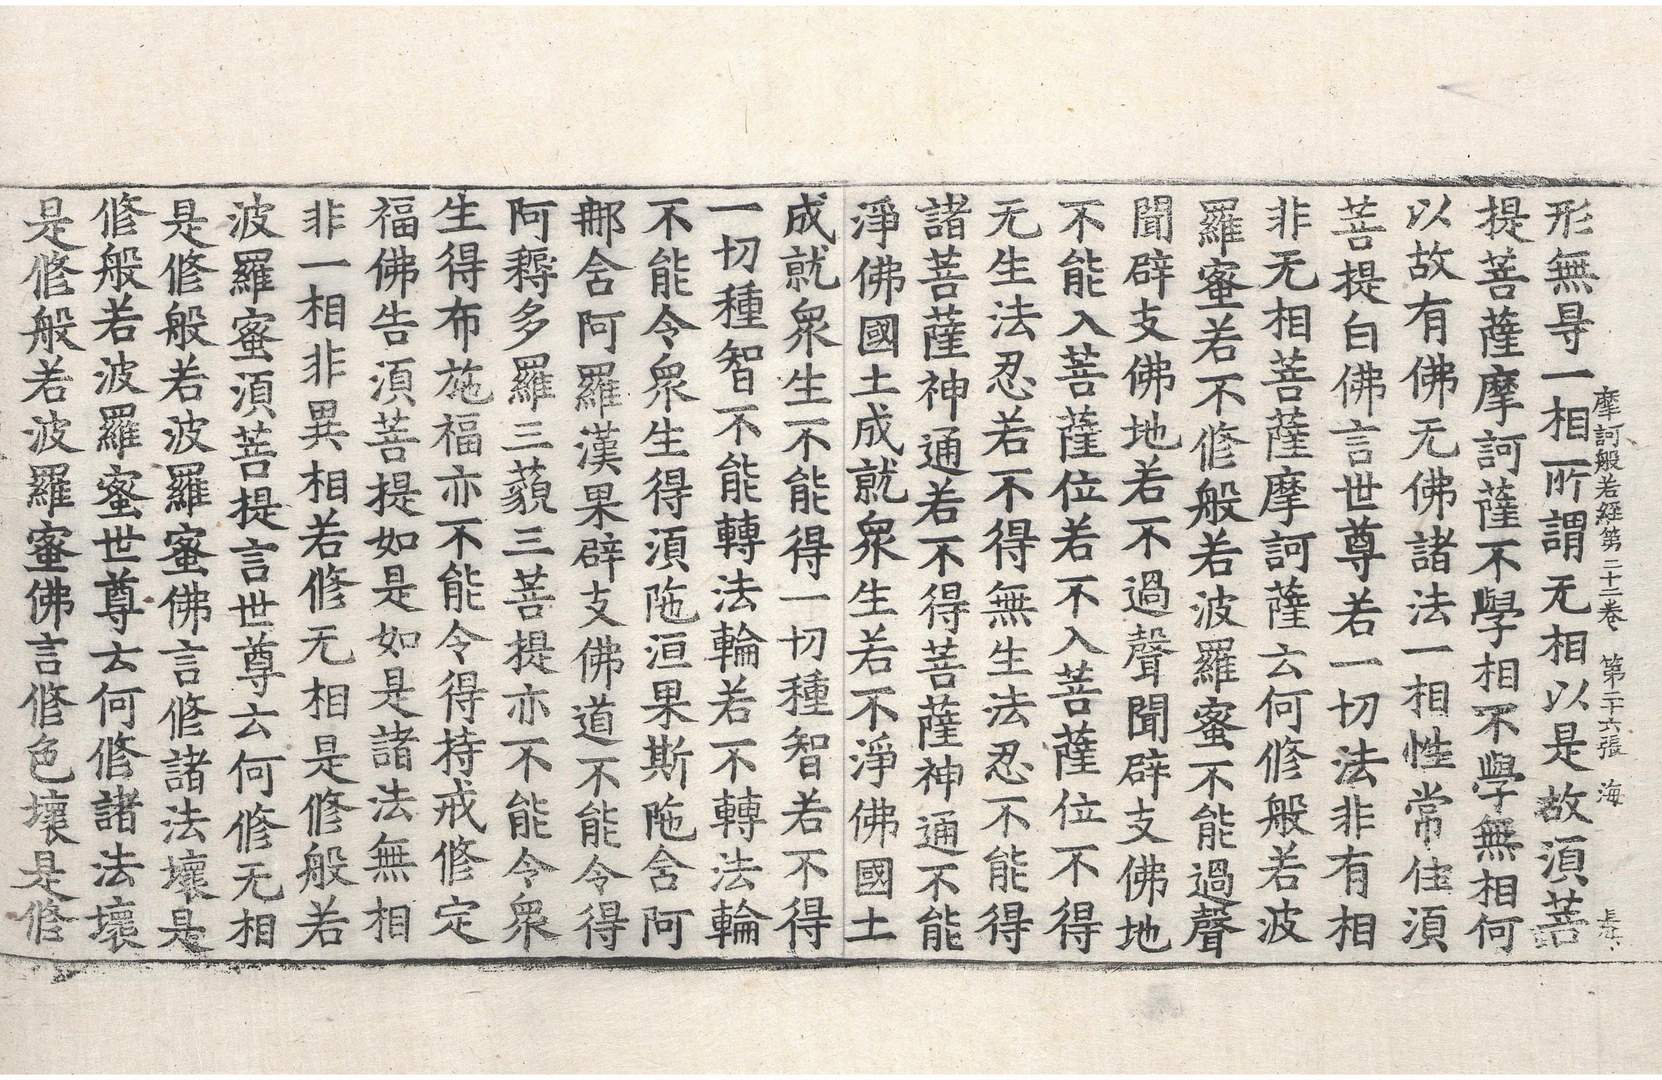 摩訶般若経第二十二卷 第二十六張 海
形無㝵一相所謂无相以是故湏菩
提菩薩摩訶薩不學相不學無相何
以故有佛无佛諸法一相性常住湏
菩提白佛言世尊若一切法非有相
非无相菩薩摩訶薩云何修般若波
羅蜜若不修般若波羅蜜不能過聲
聞辟支佛地若不過聲聞辟支佛地
不能入菩薩位若不入菩薩位不得
无生法忍若不得無生法忍不能得
諸菩薩神通若不得菩薩神通不能
淨佛國土成就衆生若不淨佛國土
成就衆生不能得一切種智若不得
一切種智不能轉法輪若不轉法輪
不能令衆生得湏陁洹果斯陁含阿
那含阿羅漢果辟支佛道不能令得
阿耨多羅三藐三菩提亦不能令衆
生得布施福亦不能令得持戒修定
福佛告湏菩提如是如是諸法無相
非一相非異相若修无相是修般若
波羅蜜湏菩提言世尊云何修无相
是修般若波羅蜜佛言修諸法壞是
修般若波羅蜜世尊云何修諸法壞
是修般若波羅蜜佛言修色壞是修